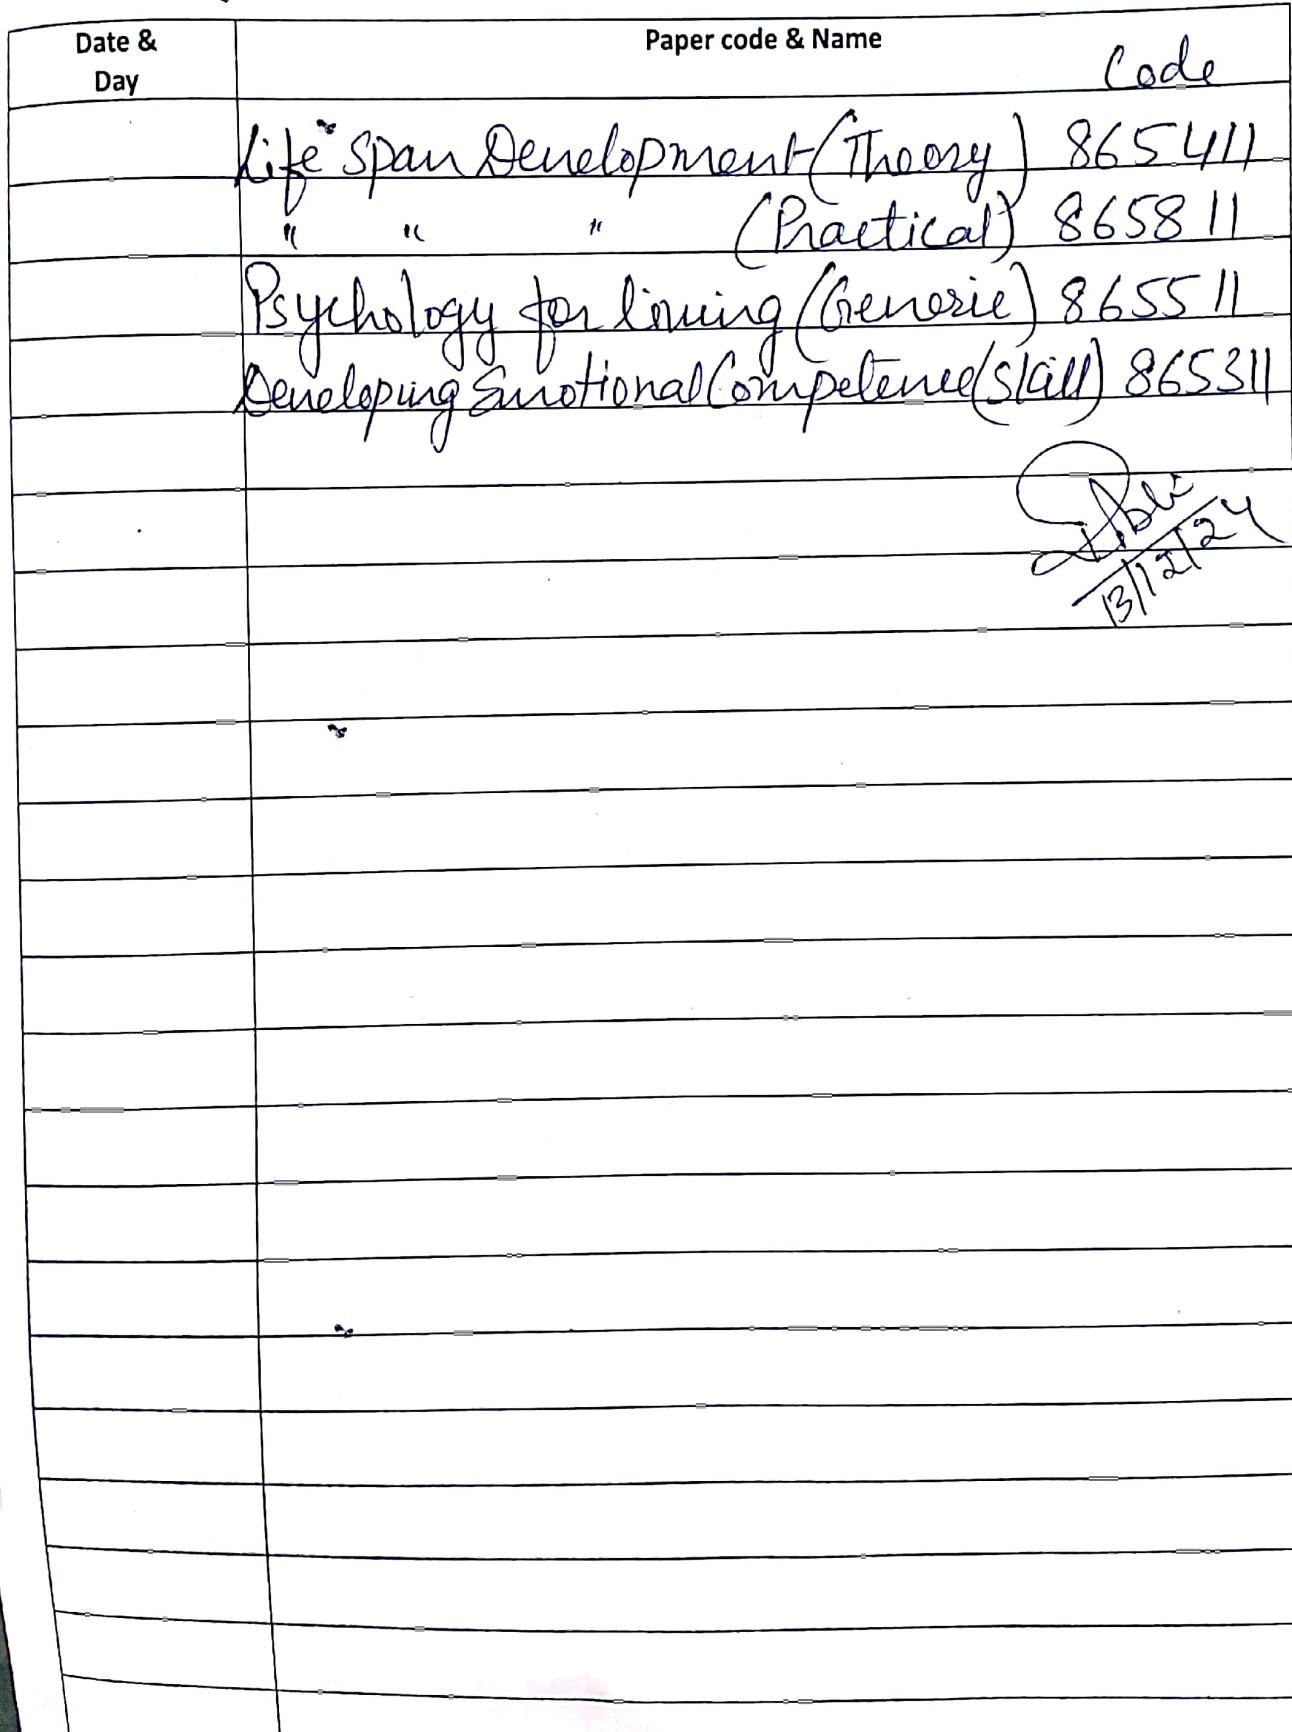 Date & Day
Paper code & Name
Code
Life Span Development (Theory) 865411
" " " (Practical) 865811
Psychology for living (Generic) 865511
Developing Emotional Competence (Skill) 865311
13/12/24